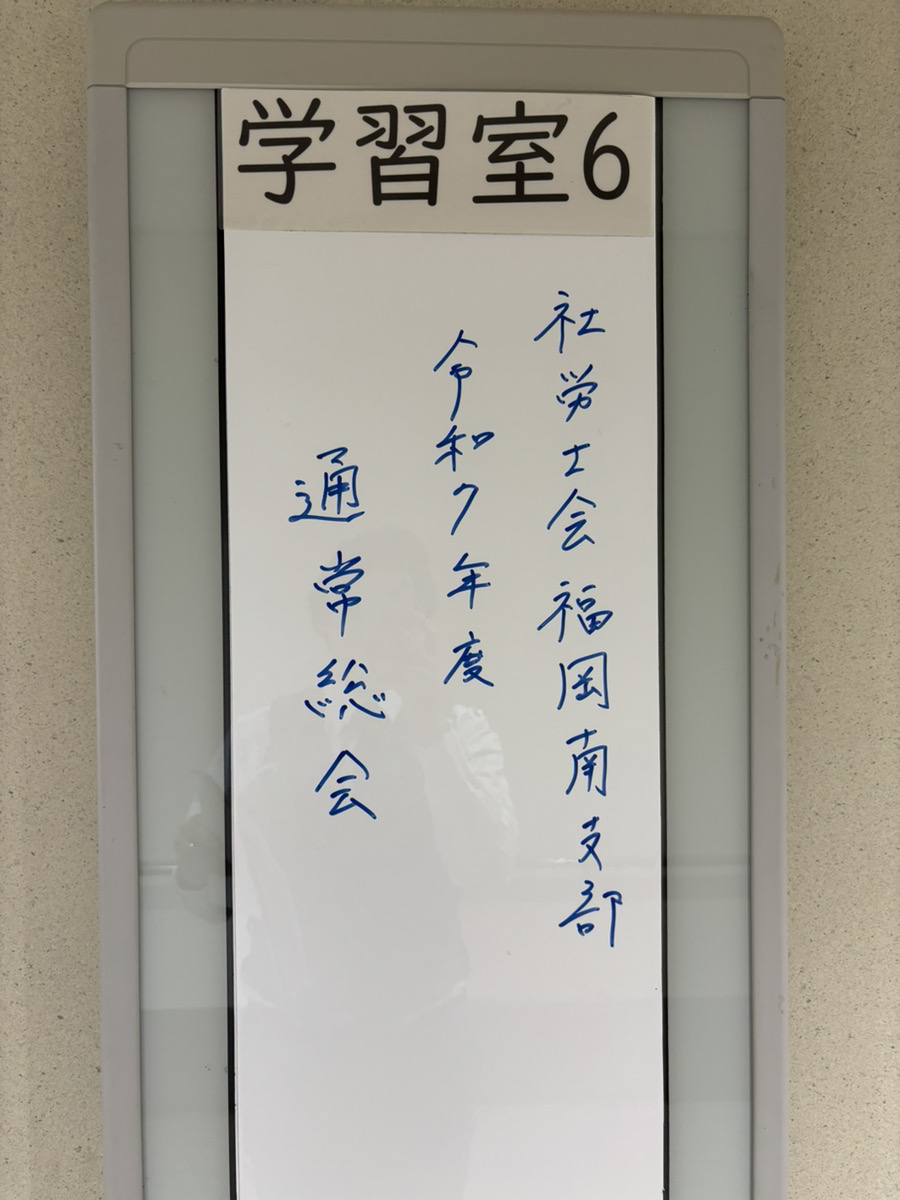 学習室6
社労士会福岡南支部
令和7年度
通常総会